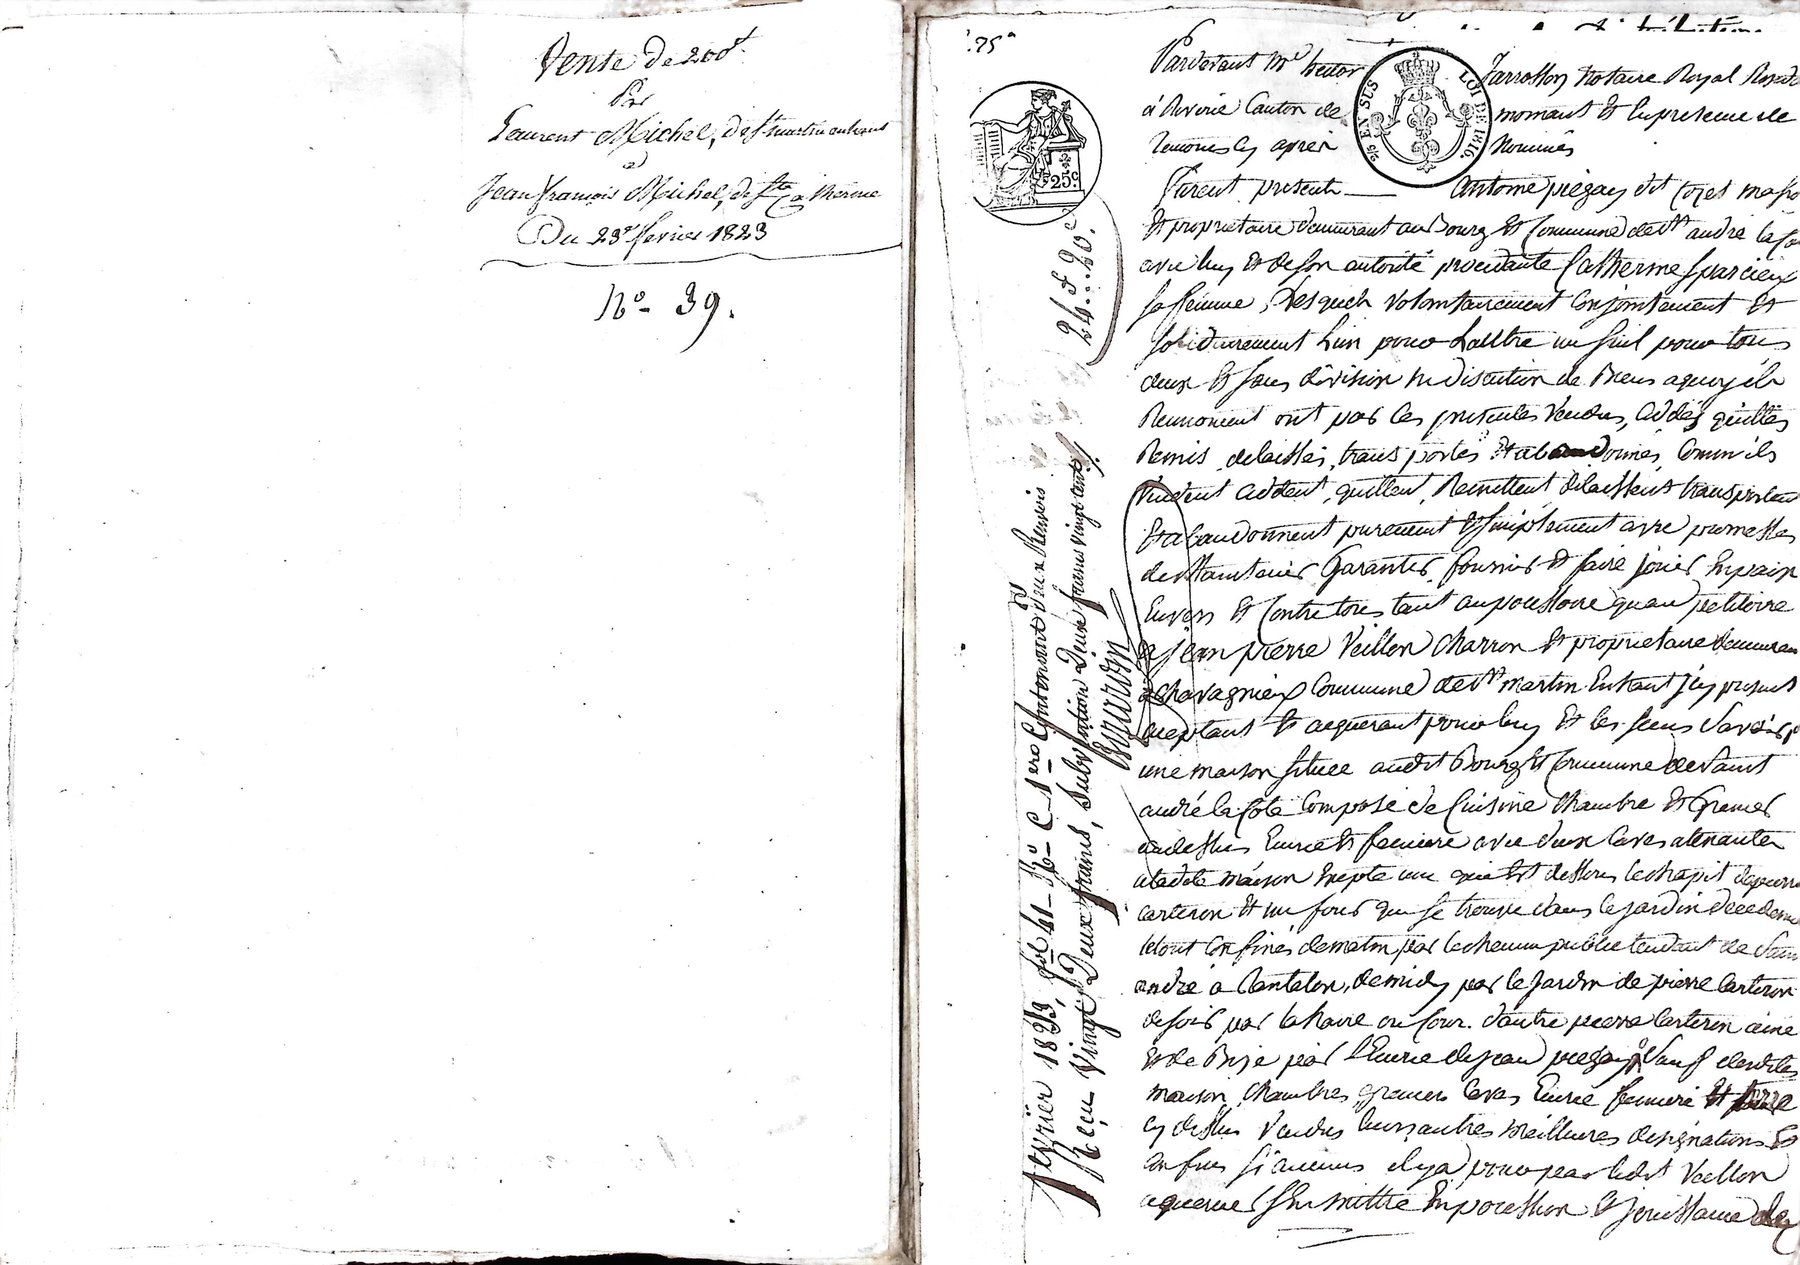 Vente de 200f.
Par
Laurent Michel, de St martin en haut
a
Jean françois Michel, de Ste Catherine
Du 23e fevrier 1823
No- 39.
Pardevant Me hector Jarrosson Notaire Royal
à Riverie Canton de mornant Et En presence de
Temoins Cy après Nommés
Furent presents Antoine piégay dit
Et proprietaire demeurant au Bourg Et Commune de St andré la
avec luy Et de son autorité procédante Catherine sparcieux
sa femme, Lesquels volontairement Conjointement Et
solidairement L'un pour Lauttre un seul pour tous
deux Et sans division ny discution de Biens aquoy ils
Rennoncent ont par Ces presentes vendus, Cédés quittés
Remis, delaissés, transportés Et abandonnés, Comm'ils
vendent Cédent, quittent, Remettent délaissent transportent
Et abandonnent purement Et simplement avec promesses
de Maintenir Garantir fournir Et faire jouir En paix
Envers Et Contre tous tant au possessoire quau petitoire
a jean pierre Veillon Charron Et proprietaire
a Chavagnieux Commune de St martin En haut jcy present
aceptant Et aquerant pour luy Et les siens Savoir
une maison située audit Bourg Et Commune de Saint
andré la Cote Composé de Cuisine Chambre Et Grenier
audessus Ecurie Et feniere avec deux Caves atenantes
aladite maison Exepté une qui Est dessous le chapit
Carteron Et un four qui se trouve dans le jardin
letout Confinés de matin par le chemin public tendant de
andré à, de midy par le jardin de pierre Carteron
de soir par la haire ou Cour d'autre pierre Carteron ainé
Et de Bise par l'Ecurie de jean piegay Sauf desdites
maison, Chambres, greniers Caves Ecurie feniere
Cy dessus Vendus leurs autres meilleures designations Et
Confins si aucuns il y a pour par ledit Veillon
aquereur s'En mettre En possession Et jouissance
25c.
5/6 EN SUS
LOI DE 1816.
24f..20c.
fevrier 1823, fol 41 Ro C 1ere Contenant deux Renvois
Reçu Vingt Deux francs, Subvention Deux francs vingt cent/.